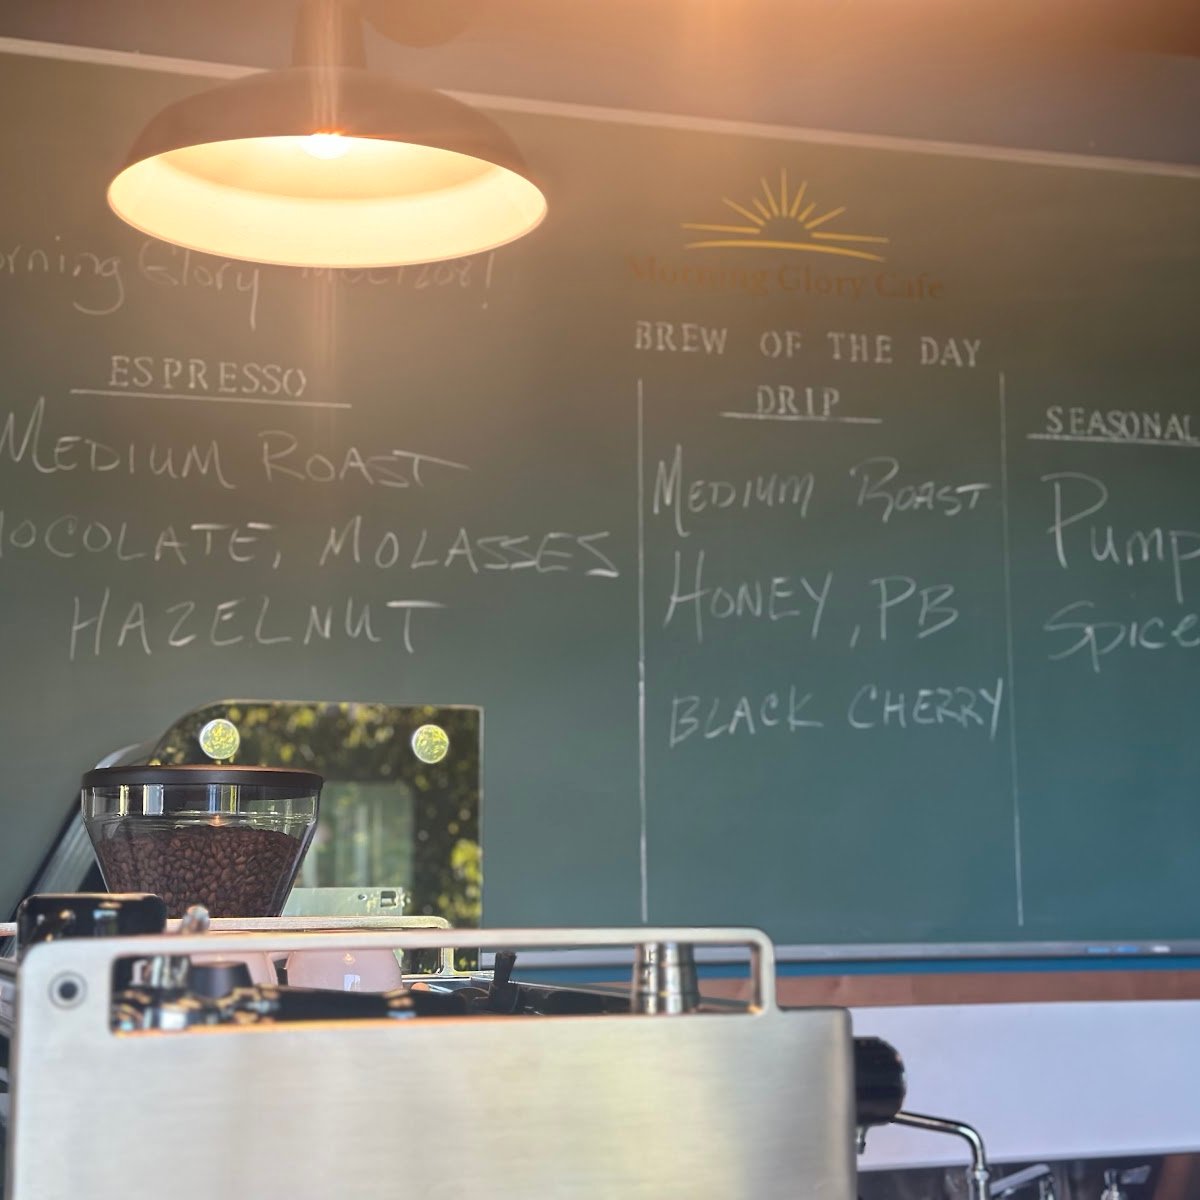 Morning Glory Cafe
orning Glory
BREW OF THE DAY
ESPRESSO
MEDIUM ROAST
HOCOLATE, MOLASSES
HAZELNUT
DRIP
MEDIUM ROAST
HONEY, PB
BLACK CHERRY
SEASONAL
Pump
Spice